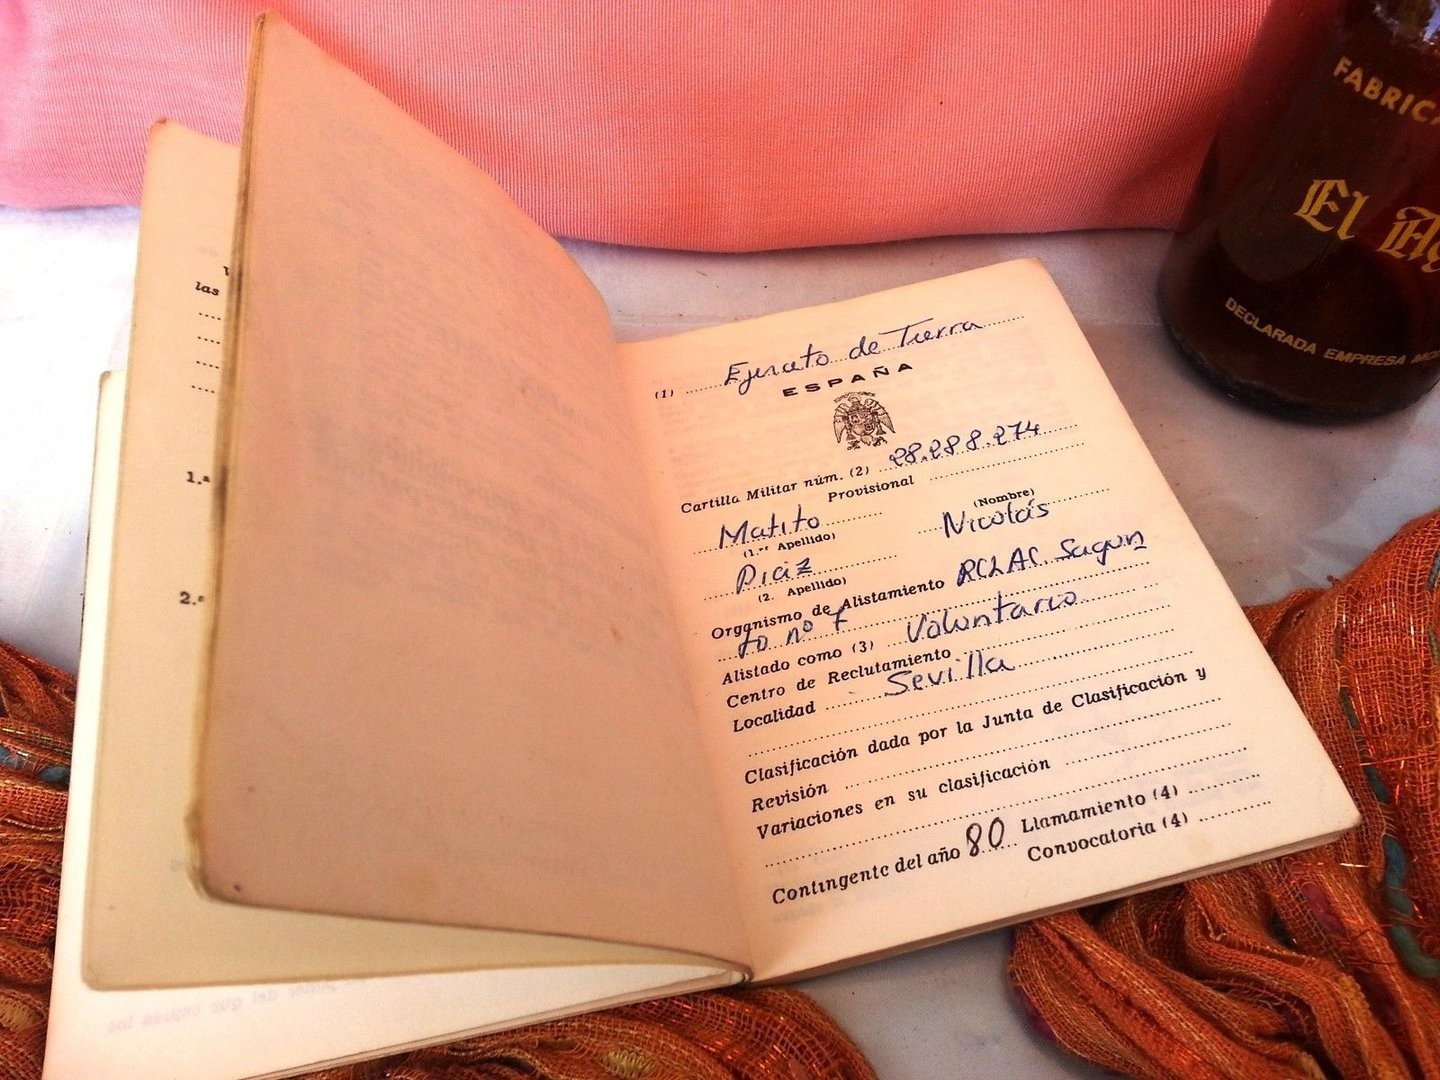 (1) Ejercito de Tierra
ESPAÑA
Cartilla Militar núm. (2) 28.288.274
Provisional
Matito Nicolás
(1.er Apellido) (Nombre)
Diaz
(2. Apellido)
Organismo de Alistamiento RCLAC Sagun
to nº 7
Alistado como (3) Voluntario
Centro de Reclutamiento
Localidad Sevilla
Clasificación dada por la Junta de Clasificación y
Revisión
Variaciones en su clasificación
Contingente del año 80 Llamamiento (4)
Convocatoria (4)
las
1.ª
2.ª
FABRICA
El
DECLARADA EMPRESA